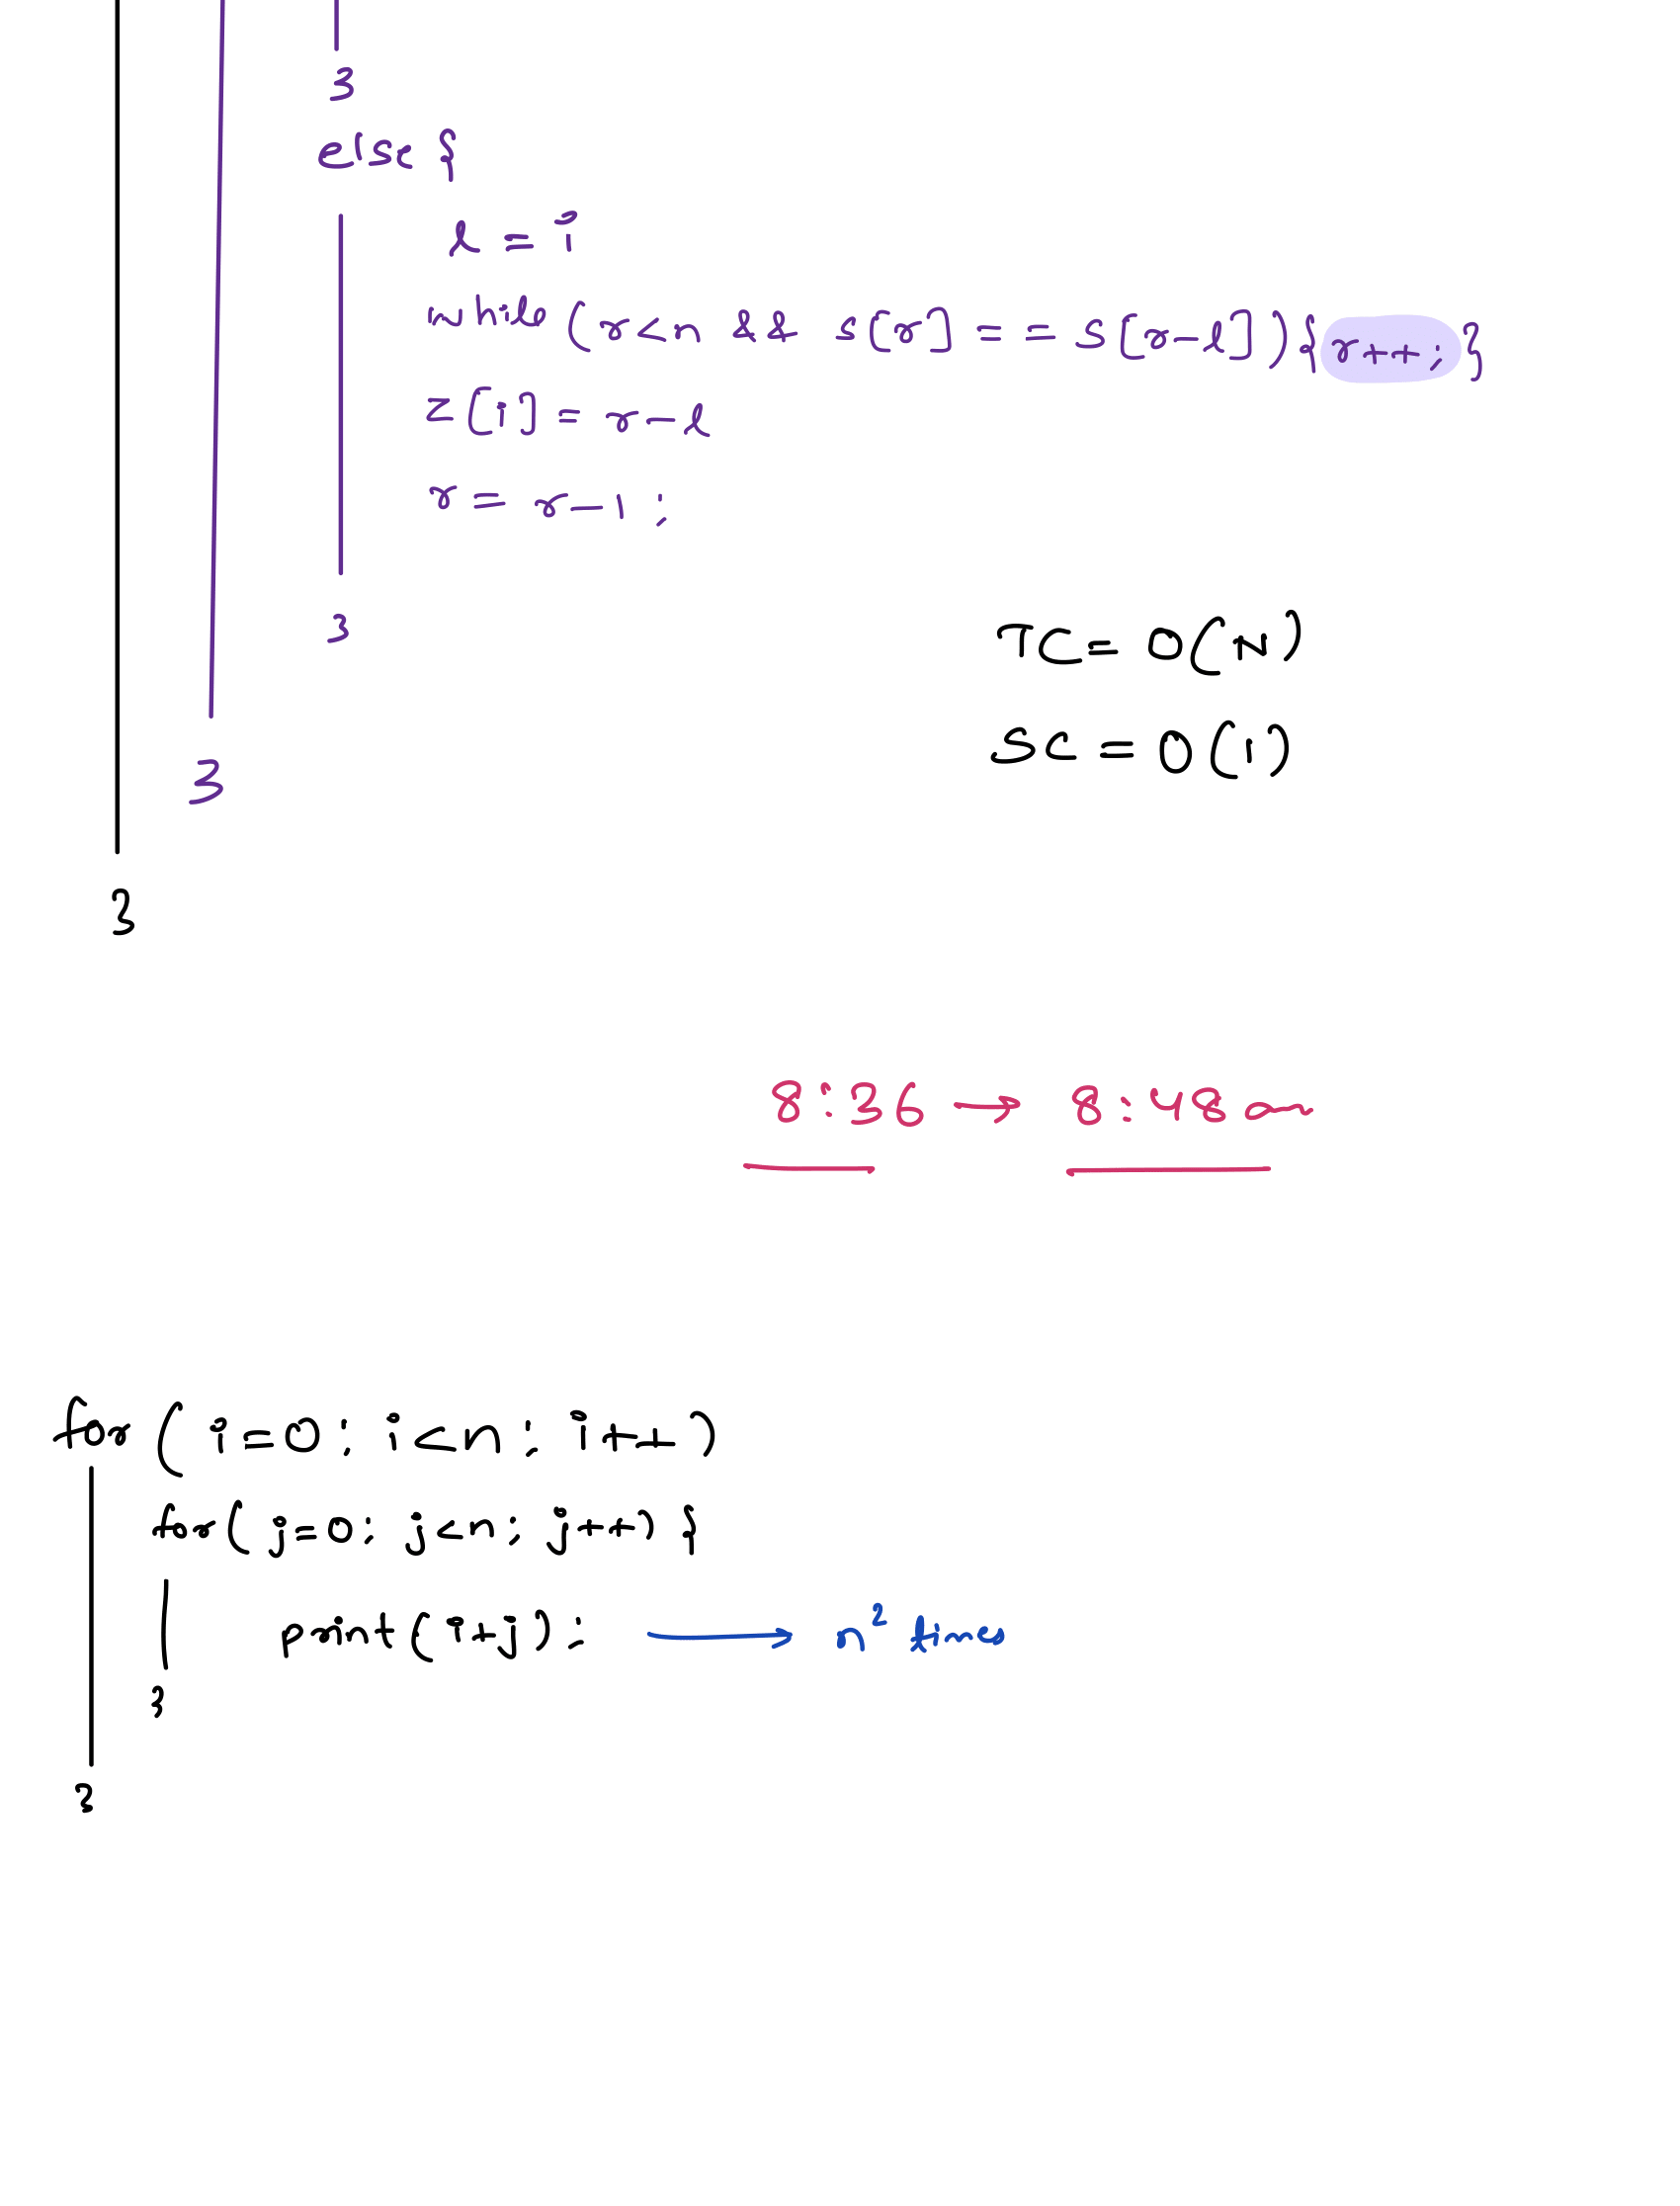 }
else {
l = i
while (r<n && s[r] == s[r-l]){ r++; }
z[i] = r-l
r = r-1;
}
TC = O(N)
SC = O(1)
}
}
8:36 → 8:48 am
for ( i=0; i<n; i++)
for( j=0; j<n; j++) {
print(i+j); → n² times
}
}